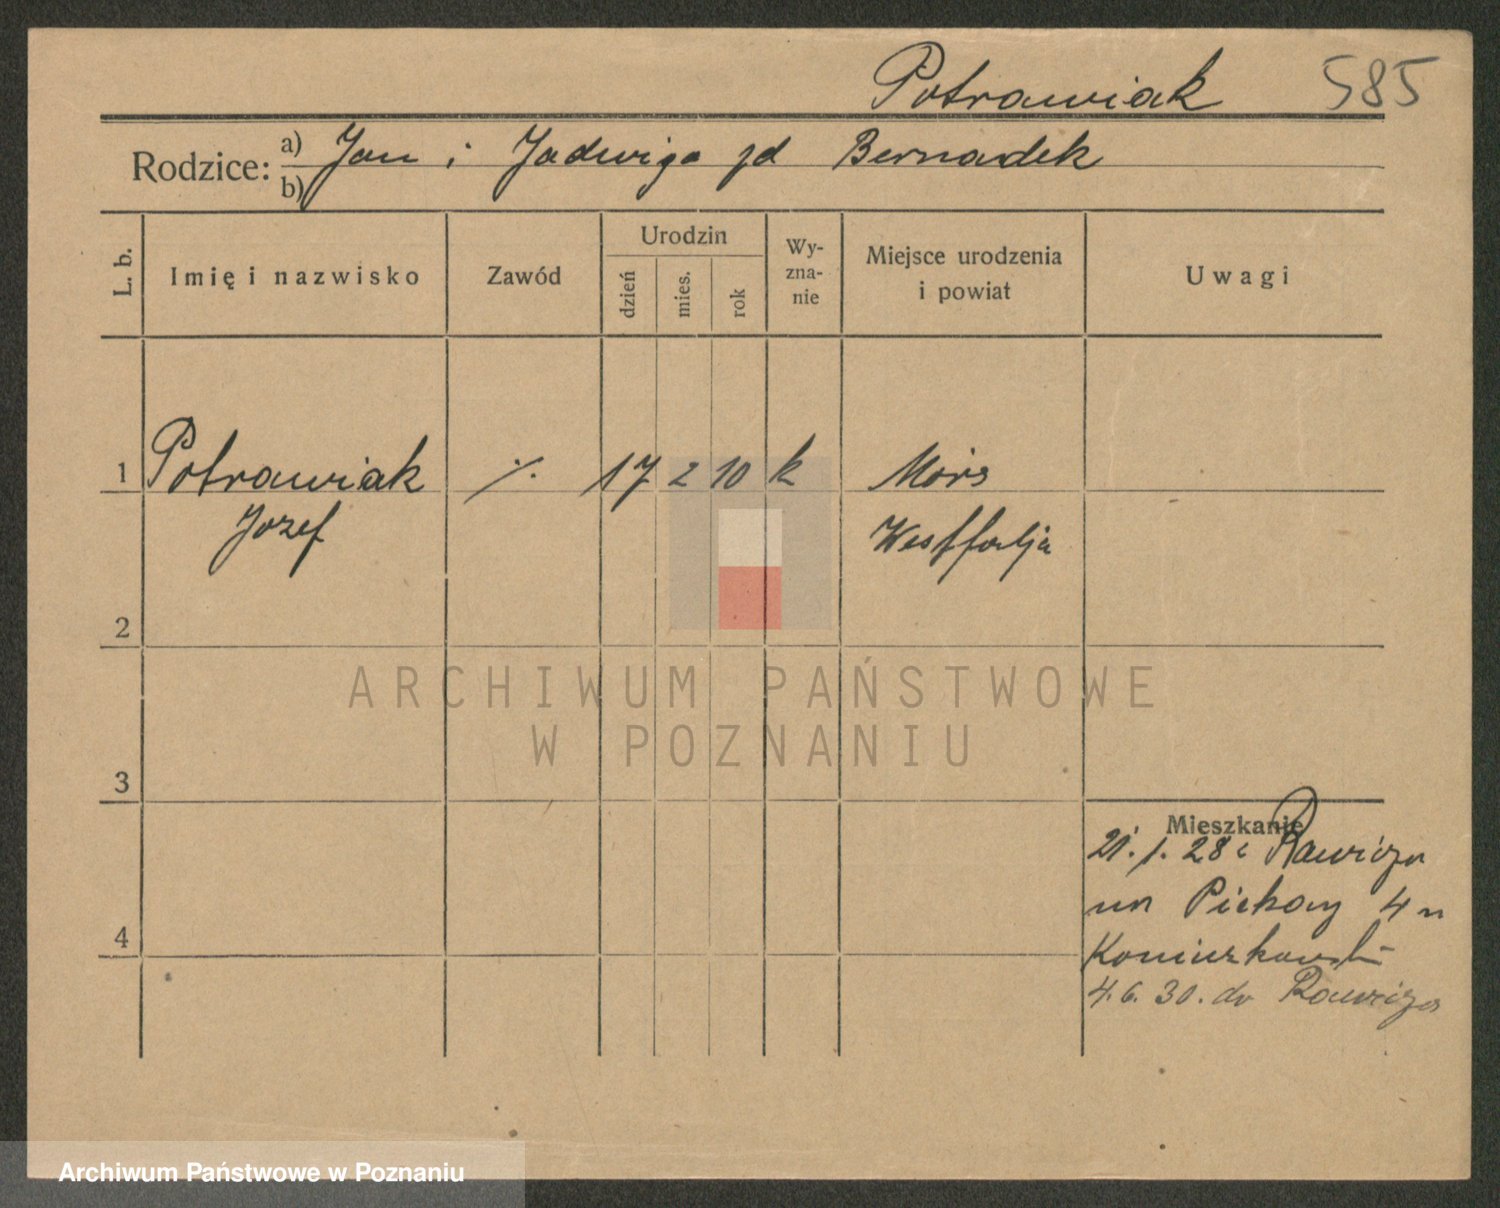 Potrawiak 585
Rodzice: a) Jan i Jadwiga zd Bernadek
b)
L. b.
Imię i nazwisko
Zawód
Urodzin
dzień
mies.
rok
Wy-
zna-
nie
Miejsce urodzenia
i powiat
Uwagi
1 Potrawiak ·/. 17 2 10 k Mörs
Jozef Westfalja
2
ARCHIWUM PAŃSTWOWE
W POZNANIU
3
Mieszkanie
21. 1. 28 z Rawicza
na Piekary 4 u
4
4. 6. 30. do Rawicza
Archiwum Państwowe w Poznaniu